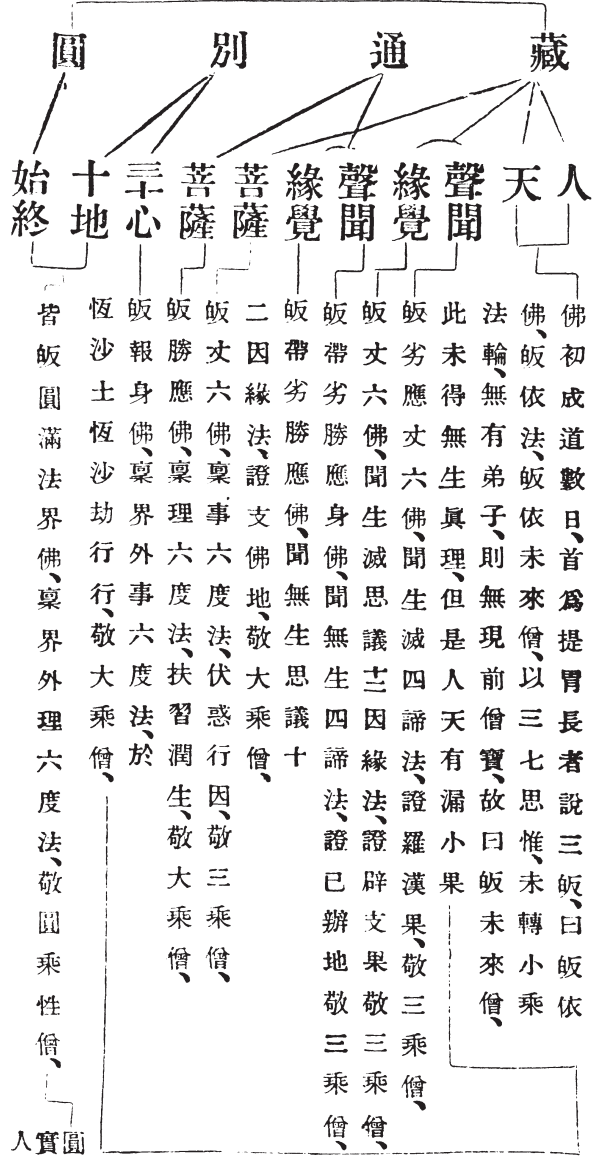 藏
通
別
圓
人
天
聲聞
緣覺
聲聞
緣覺
菩薩
菩薩
三十心
十地
始終
佛初成道數日、首爲提胃長者說三皈、曰皈依
佛、皈依法、皈依未來僧、以三七思惟、未轉小乘
法輪、無有弟子、則無現前僧寶、故曰皈未來僧、
此未得無生眞理、但是人天有漏小果
皈劣應丈六佛、聞生滅四諦法、證羅漢果、敬三乘僧、
皈丈六佛、聞生滅思議十二因緣法、證辟支果敬三乘僧、
皈帶劣勝應身佛、聞無生四諦法、證已辦地敬三乘僧、
皈帶劣勝應佛、聞無生思議十
二因緣法、證支佛地、敬大乘僧、
皈丈六佛、稟事六度法、伏惑行因、敬三乘僧、
皈勝應佛、稟理六度法、扶習潤生、敬大乘僧、
皈報身佛、稟界外事六度法、於
恆沙土恆沙劫行行、敬大乘僧、
皆皈圓滿法界佛、稟界外理六度法、敬圓乘性僧、
圓實人